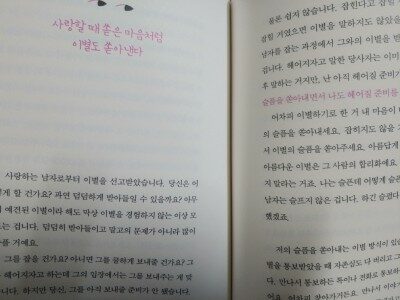 사랑할 때 쏟은 마음처럼
이별도 쏟아낸다
사랑하는 남자로부터 이별을 선고받았습니다. 당신은 어
떻게 할 건가요? 과연 덤덤하게 받아들일 수 있을까요? 아무
리 예견된 이별이라 해도 막상 이별을 경험하지 않는 이상 모
릅니다. 덤덤히 받아들이고 말고의 문제가 아니라 많이
할 거예요.
그를 잡을 건가요? 아니면 그를 쿨하게 보내줄 건가요? 그
헤어지자고 하는데 그의 입장에서는 그를 보내주는 게 맞
다. 하지만 당신, 그를 아직 보내줄 준비가 안 됐습니다.
물론 쉽지 않습니다. 잡힌다고 잡힐
잡힐 거였으면 이별을 말하지도 않았을
남자를 잡는 과정에서 그와의 이별을 받
겁니다. 헤어지자고 말한 당사자는 이미
후 말하는 거지만, 난 아직 헤어질 준비가
슬픔을 쏟아내면서 나도 헤어질 준비를
어차피 이별하기로 한 거 내 마음이
의 슬픔을 쏟아내세요. 잡히지도 않을
서 이별의 슬픔을 쏟아주세요. 아름답게
아름다운 이별은 그 사람의 합리화예요.
지 말라는 거죠. 나는 슬픈데 어떻게 슬픈
남자는 슬프지 않은 겁니다. 하긴 슬펐다
했겠죠.
저의 슬픔을 쏟아내는 이별 방식이 있습
별을 통보받았을 때 자존심도 다 버리고 그
다. 만나서 통보하든 톡이나 전화로 통보하